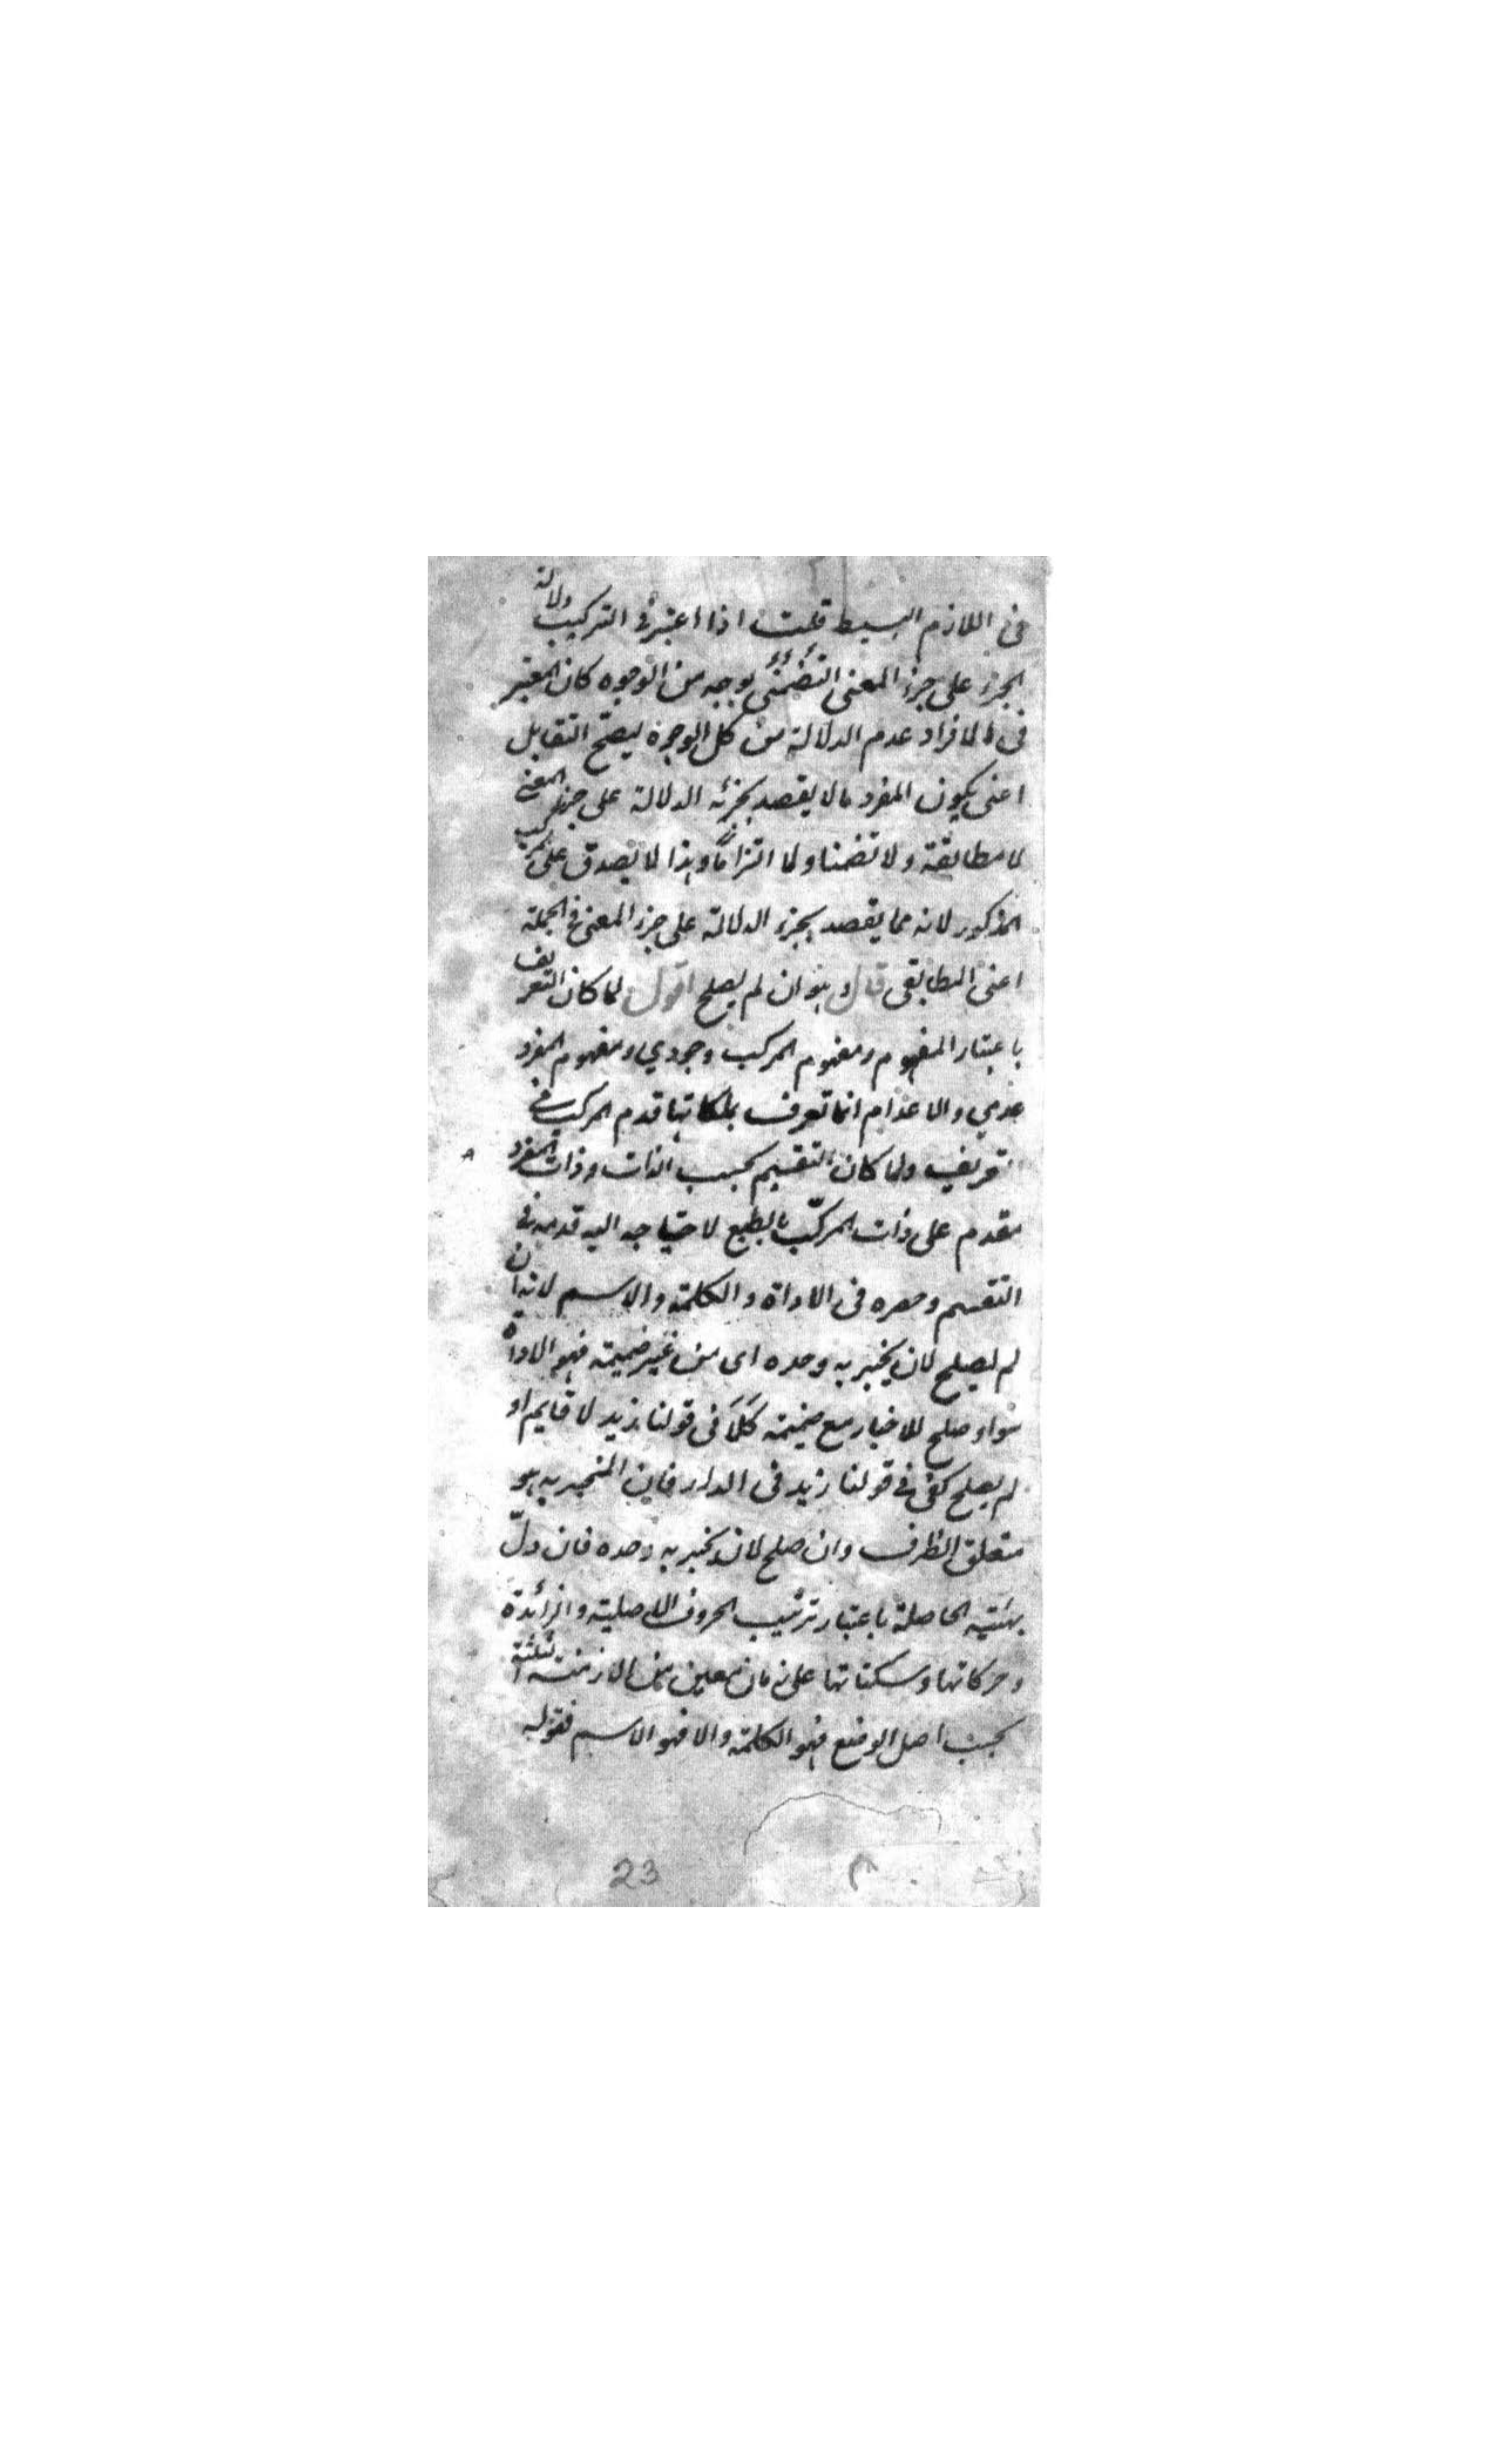 في اللازم البسيط قلت اذا اعتبر في التركيب دلالة
الجزء على جزء المعنى التضمني بوجه من الوجوه كان المعتبر
في الافراد عدم الدلالة من كل الوجوه ليصح التقابل
اعنى يكون المفرد ما لا يقصد بجزئه الدلالة على جزء المعنى
لا مطابقة ولا تضمنا ولا التزاما وهذا لا يصدق على المركب
المذكور لانه مما يقصد بجزء الدلالة على جزء المعنى في الجملة
اعنى المطابقى قال وهو ان لم يصلح اقول لما كان التعريف
باعتبار المفهوم ومفهوم المركب وجودي ومفهوم المفرد
عدمي والاعدام انما تعرف بملكاتها قدم المركب في
تعريف ولما كان التقسيم بحسب الذات وذات المفرد
مقدم على ذات المركّب بالطبع لاحتياجه اليه قدمه في
التقسيم وحصره فى الاداة والكلمة والاسم لانه ان
لم يصلح لان يخبر به وحده اى من غير ضميمة فهو الاداة
سواء صلح للاخبار مع ضميمة كَلَا فى قولنا زيد لا قايم او
لم يصلح كفى في قولنا زيد فى الدار فاين المخبر به هو
متعلق الظرف وان صلح لان يخبر به وحده فان دلّ
بهيئته الحاصلة باعتبار ترتيب الحروف الاصلية والزائدة
وحركاتها وسكناتها على زمان معين من الازمنة الثلثة
بحسب اصل الوضع فهو الكلمة والا فهو الاسم فقوله
23